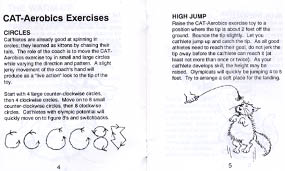 CAT-Aerobics Exercises
CIRCLES
Cathletes are already good at spinning in
circles; they learned as kittens by chasing their
tails. The role of the coach is to move the CAT-
Aerobics exercise toy in small and large circles
while varying the direction and pattern. A slight
jerky movement of the coach's hand will
produce as a "live action" look to the tip of the
toy.
Start with 4 large counter-clockwise circles,
then 4 clockwise circles. Move on to 8 small
counter-clockwise circles, then 8 clockwise
circles. Cathletes with olympic potential will
quickly move on to figure 8's and switchbacks.
4
HIGH JUMP
Raise the CAT-Aerobics exercise toy to a
position where the tip is about 2 feet off the
ground. Bounce the tip slightly. Let your
cathlete jump up and catch the tip. As all good
athletes need to reach their goal, do not jerk the
tip away before the cathlete can reach it (at
least not more than once or twice). As your
cathlete develops skill, the height may be
raised. Olympicats will quickly be jumping 4 to 5
feet. Try to arrange a soft place for the landing.
5